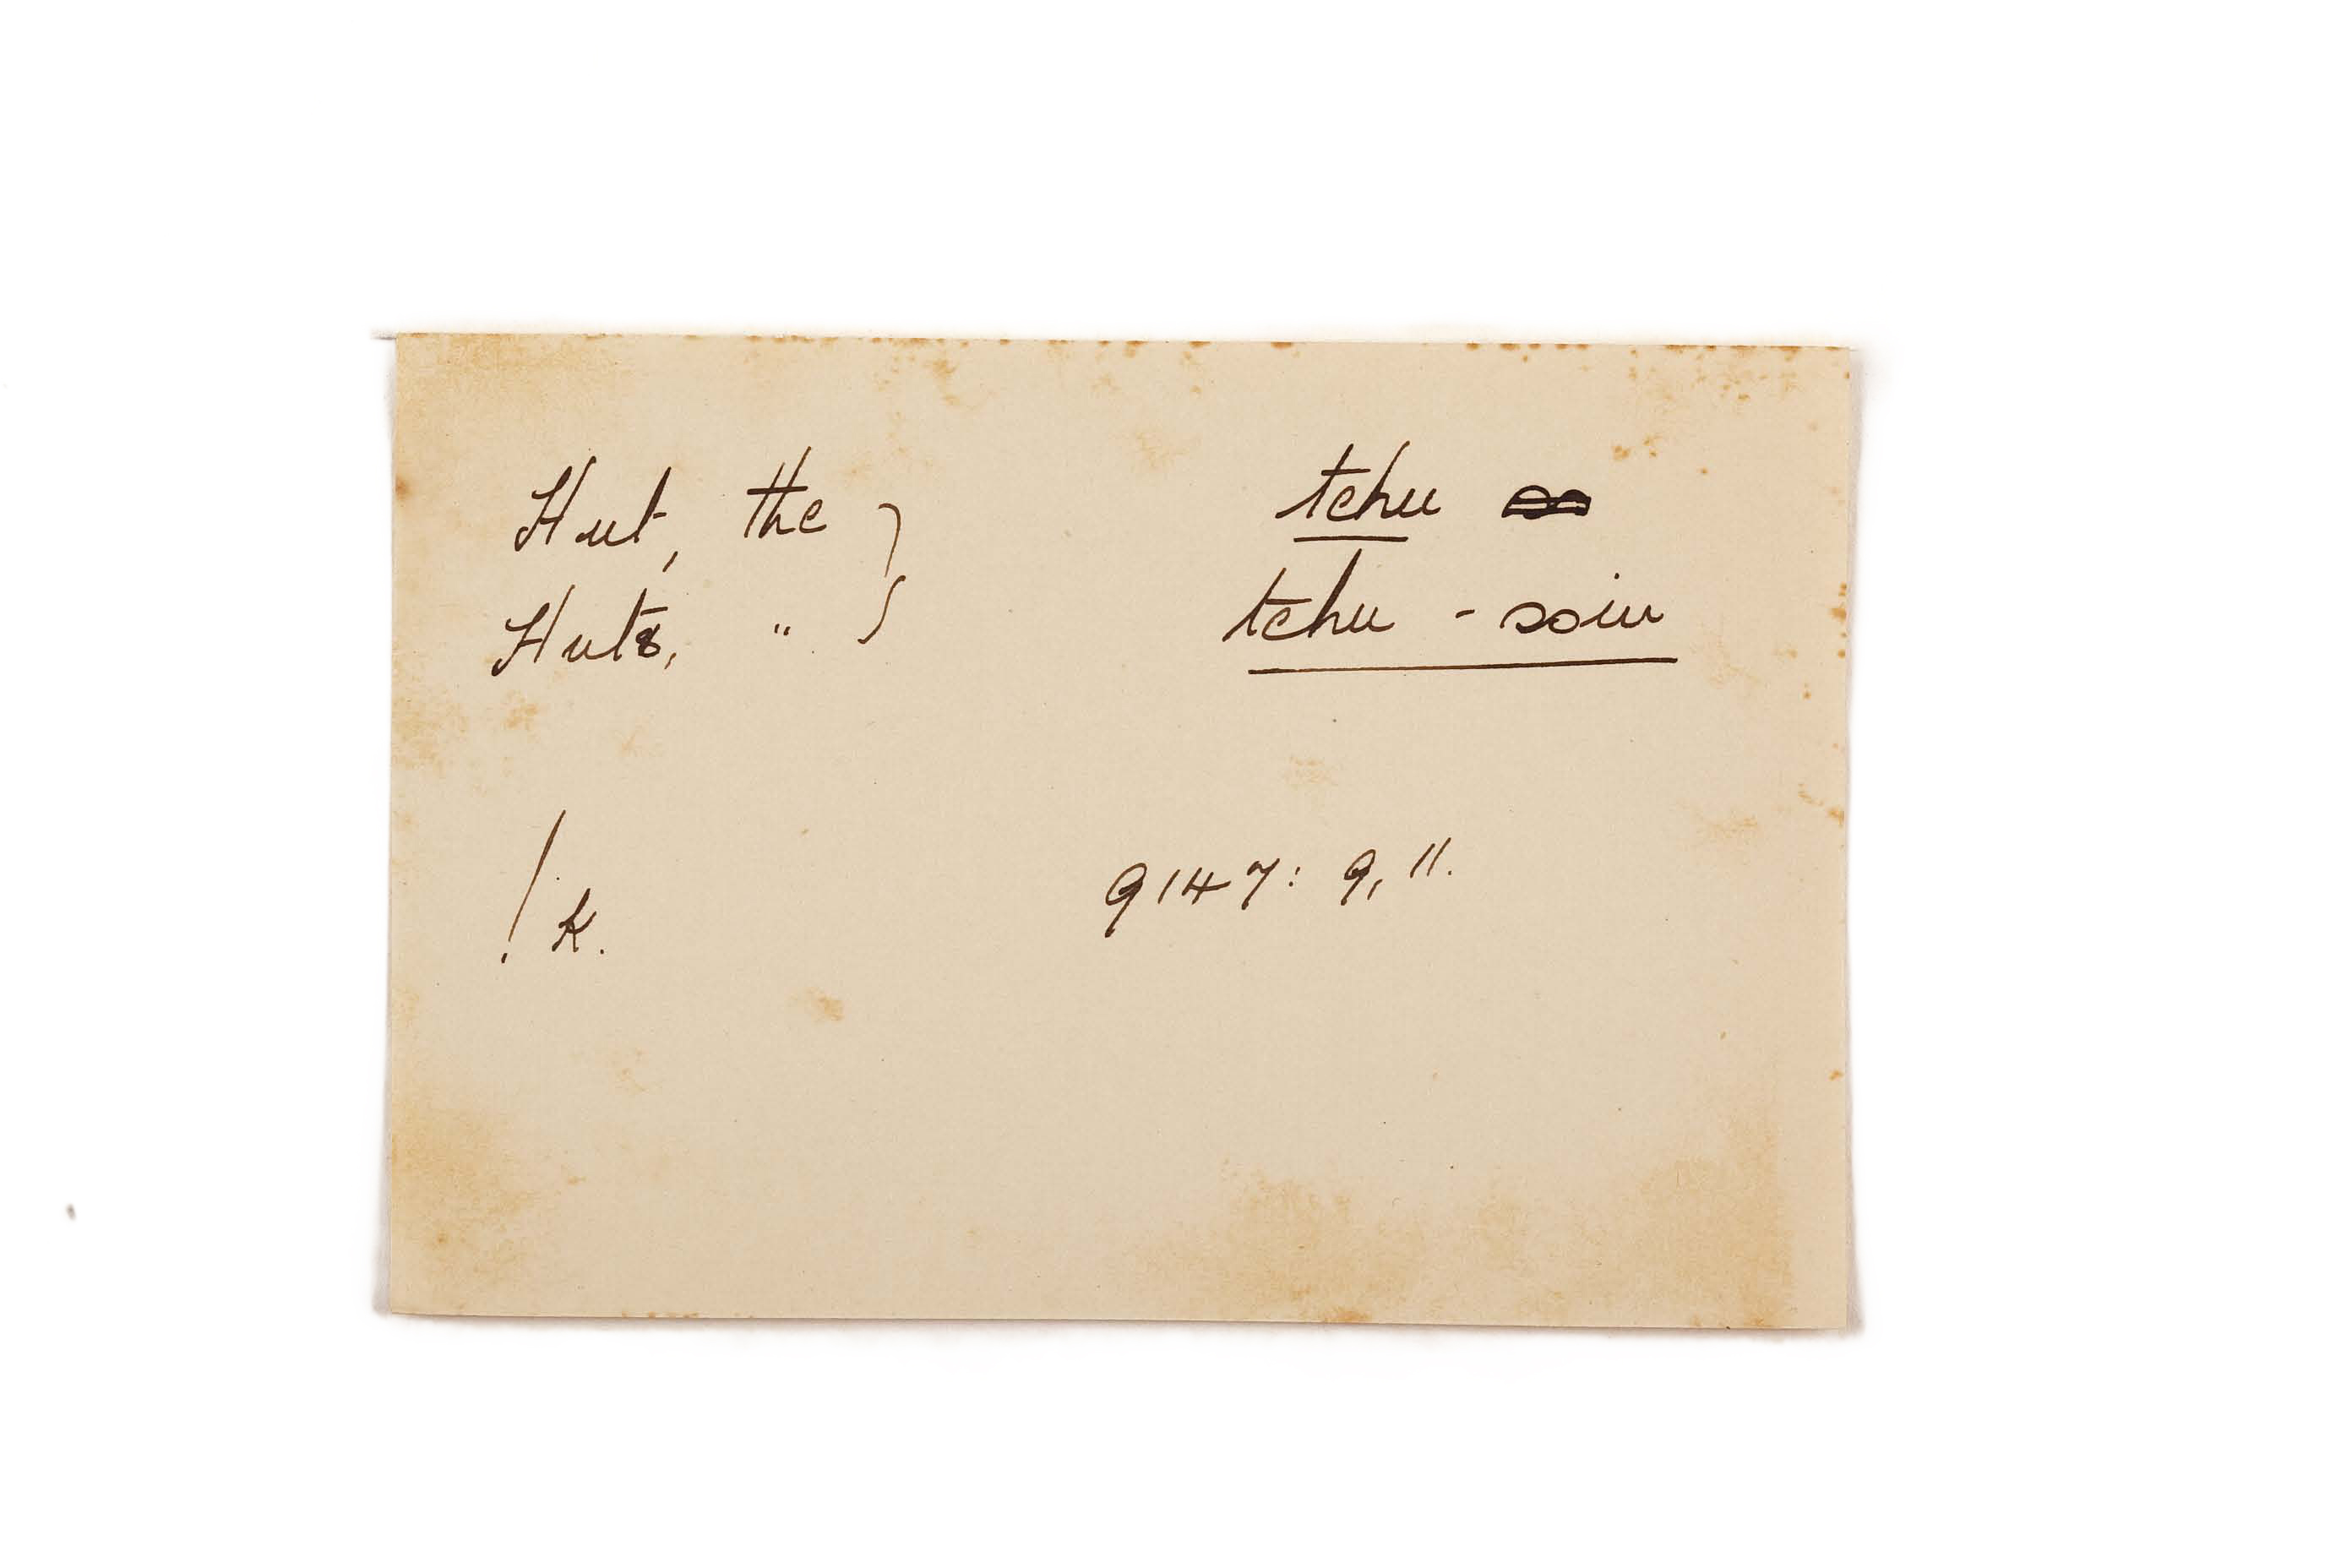 Hut, the } tchu
Huts, " } tchu - soin
!k. 9147: 9, 11.